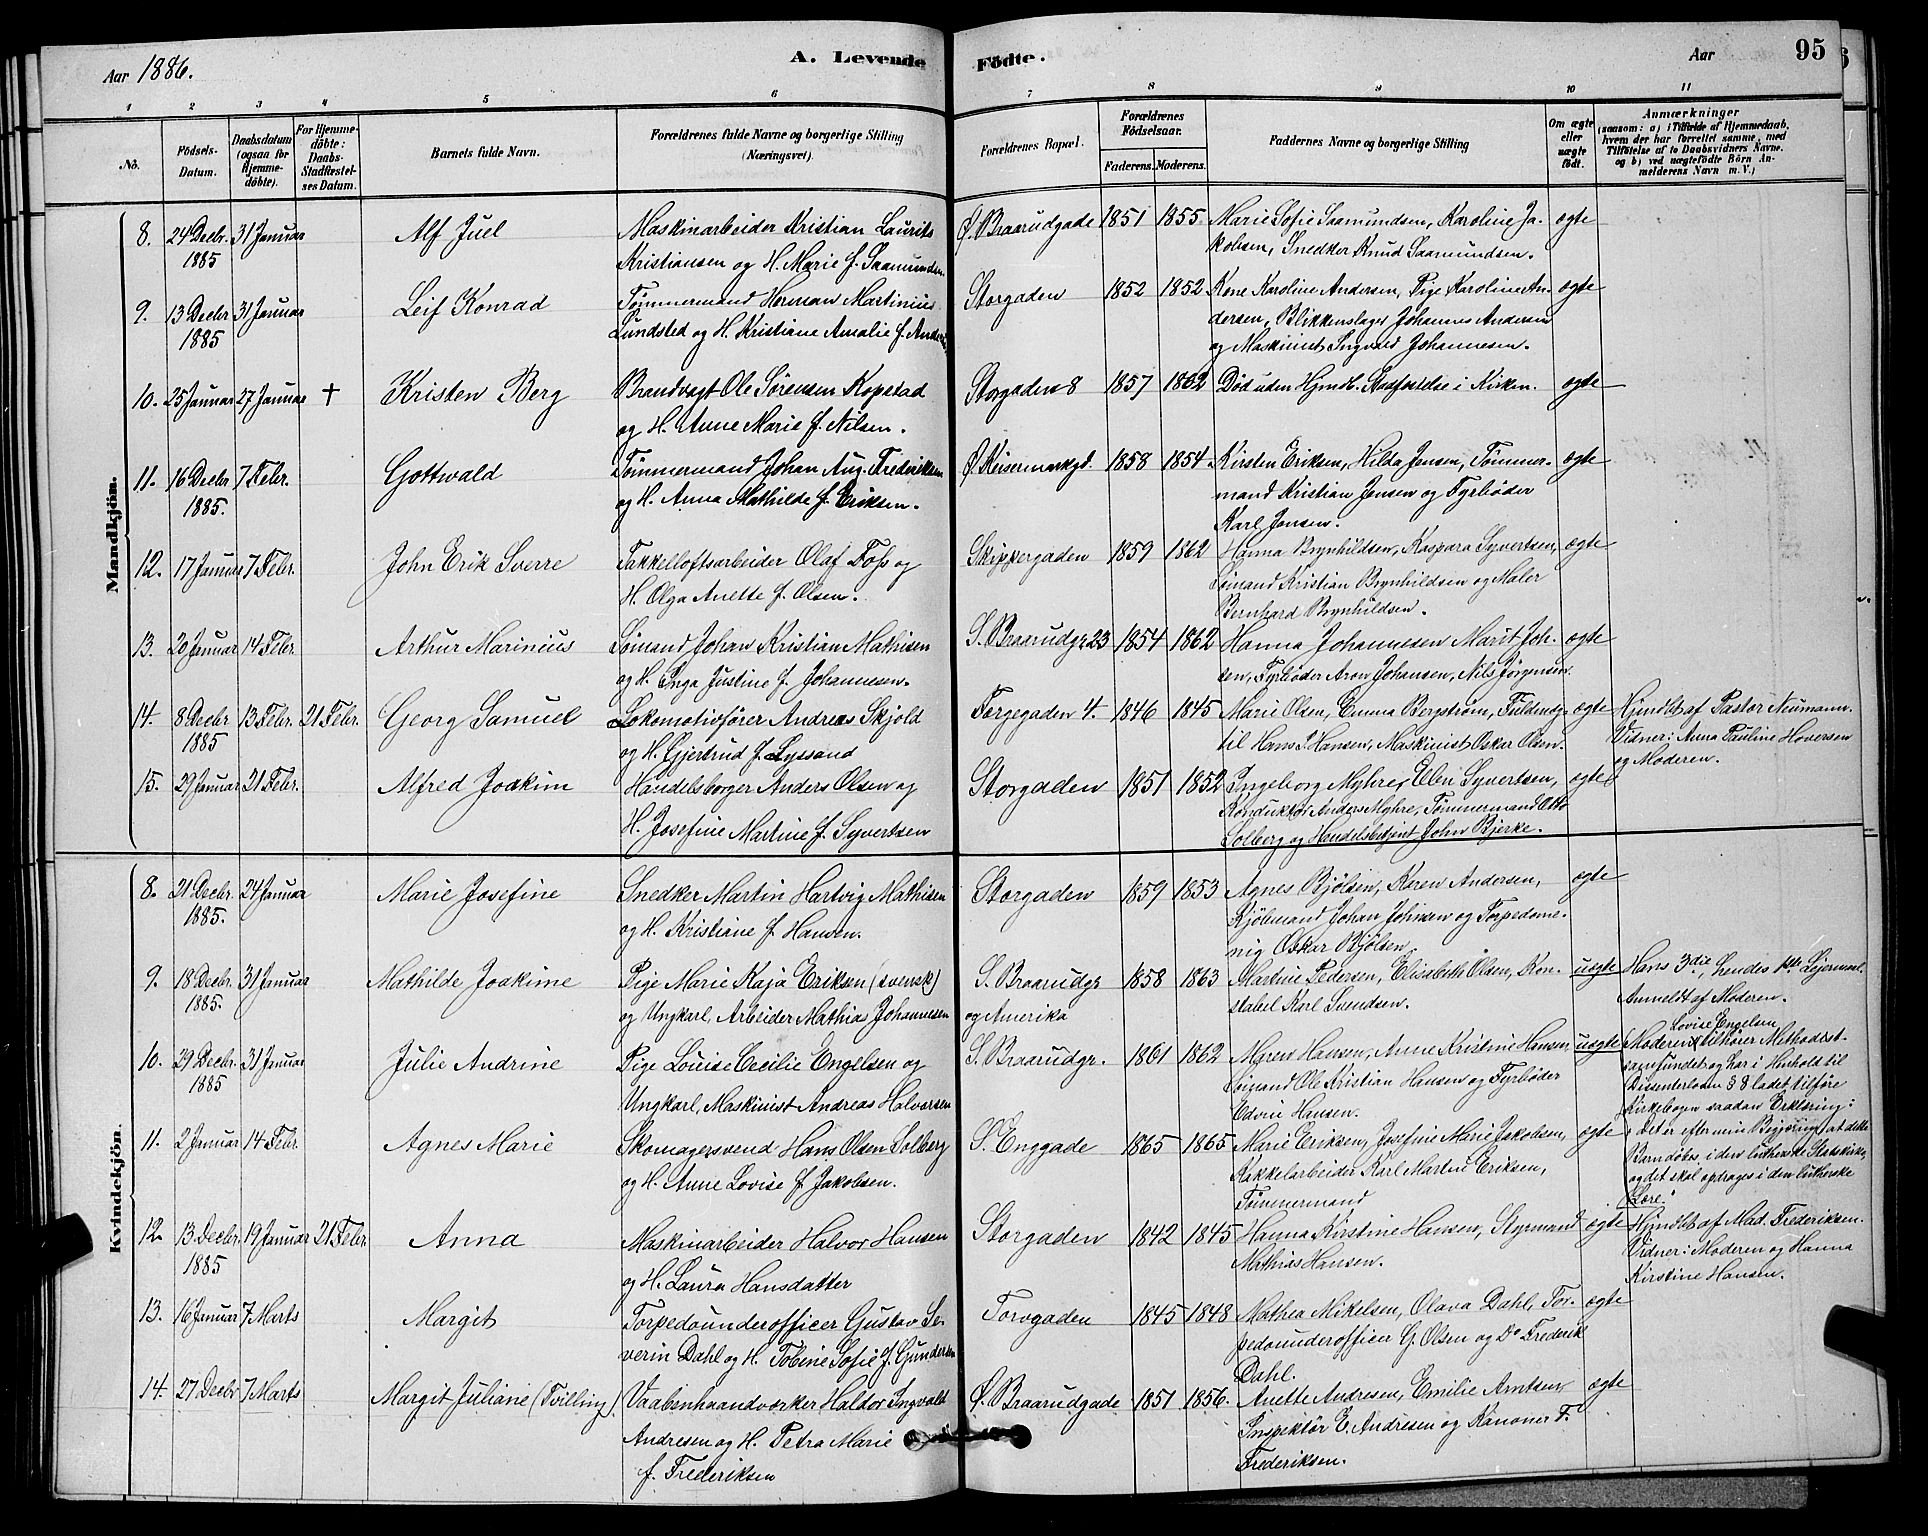 Aar 1886.
A. Levende
Födte.
Aar
95
1 2 3 4 5 6
7 8 9 10 11
No.
Födsels-Datum.
Daabsdatum (ogsaa for Hjemme-döbte).
For Hjemme-döbte: Daabs-Stadfæstelses Datum.
Barnets fulde Navn.
Forældrenes fulde Navne og borgerlige Stilling (Næringsvei).
Forældrenes Bopæl.
Forældrenes Födselsaar.
Faderens. Moderens.
Faddernes Navne og borgerlige Stilling
Om ægte eller uægte födt.
Anmærkninger
(saasom: a) i Tilfælde af Hjemmedaab,
hvem der har forrettet samme, med
Tilföielse af to Daabsvidners Navne.
og b) ved uægtefödte Börn An-
melderens Navn m. V.)
Mandkjön.
8. 24 Decbr. 1885 31 Januar Alf Juel Maskinarbeider Kristian Laurits
Kristiansen og H. Marie f. Saamundsen
Ø. Braarudgade 1851 1855 Marie Sofie Saamundsen, Karoline Ja-
kobsen, Snedker Knud Saamundsen. ægte
9. 13 Decbr 1885 31 Januar Leif Konrad Tømmermand Herman Martinius
Lundsted og H. Kristiane Amalie f. Anders
Storgaden 1852 1852 Kone Karoline Andersen, Pige Karoline An- ægte
dersen, Blikkenslager Johannes Andersen
og Maskinist Ingvald Johannesen.
10. 25 Januar 27 Januar † Kristen Berg Brandvagt Ole Sørensen Kopstad
og H. Anne Marie f. Nilsen.
Storgaden 8 1857 1862 Død uden Hjmdb. Stadfæstelse i Kirken. ægte
11. 16 Decbr 1885. 7 Febr. Gottwald Tømmermand Johan Aug. Frederiksen
og H. Anna Mathilde f. Eriksen.
Ø. Keisemarkgd. 1858 1854 Kirsten Eriksen, Hilda Jensen, Tømmer- ægte
mand Kristian Jensen og Fyrbøder
Karl Jensen.
12. 17 Januar 7 Febr. John Erik Sverre Takkelloftsarbeider Olaf Foss og
H. Olga Anette f. Olsen.
Skippergaden 1859 1862 Hanna Brynhildsen, Kaspara Syvertsen, ægte
Sømand Kristian Brynhildsen og Maler
Bernhard Brynhildsen.
13. 20 Januar 14 Febr Arthur Marinius Sømand Johan Kristian Mathisen
og H. Inga Justine f. Johannesen.
S. Braarudgr. 23 1854 1862 Hanna Johannesen Marit Joh- ægte
sen, Fyrbøder Aron Johansen, Nils Jørgensen.
14. 8 Decbr 1885 13 Febr. 21 Febr. Georg Samuel Lokomotivfører Andreas Skjold
og H. Gjertrud f. Lyssand
Torgegaden 4. 1846 1845 Marie Olsen, Emma Bergstrøm, Fuldmægt. ægte Hjmdbt af Pastor Neumann.
til Hans J. Hansen, Maskinist Oskar Olsen. Vidner: Anna Pauline Hoversen
og Moderen.
15. 29 Januar 21 Febr. Alfred Joakim Handelsborger Anders Olsen og
H. Josefine Martine f. Syvertsen
Storgaden 1851 1852 Ingeborg Myhre, Elen Syvertsen, ægte
Konduktør Anders Myhre, Tømmermand Otto
Solberg og Handelsbetjent John Bjerke.
Kvindekjön.
8. 21 Decbr. 1885. 24 Januar Marie Josefine Snedker Martin Hartvig Mathisen
og H. Kristiane f. Hansen.
Storgaden 1859 1853 Agnes Bjølsen, Karen Andersen, ægte
Kjøbmand Johan Johnsen og Torpedome-
nig Oskar Bjølsen
9. 18 Decbr. 1885. 31 Januar Mathilde Joakime Pige Marie Kaja Eriksen (svensk)
og Ungkarl, Arbeider Mathias Johannesen
S. Braarudgr 1858 1863 Martine Pedersen, Elisabeth Olsen, Kon- uægte Hans 3die, hendes 1ste Leiermaal.
og Amerika stabel Karl Svendsen. Anmeldt af Moderen.
10. 29 Decbr. 1885 31 Januar Julie Andrine Pige Louise Cecilie Engelsen og
Ungkarl, Maskinist Andreas Halvorsen
S. Braarudgr. 1861 1862 Maren Hansen, Anne Kristine Hansen, uægte
Sømand Ole Kristian Hansen og Fyrbøder
Edvin Hansen.
Lovise Engelsen
Moderen tilhører Methodist-
samfundet og har i Henhold til
Dissenterloven § 8 ladet tilføre
Kirkebogen saadan Erklæring:
"det er efter min Begjæring, at dette
Barn døbes i den lutherske Statskirke,
og det skal opdrages i den lutherske
Lære."
11. 2 Januar 14 Febr. Agnes Marie Skomagersvend Hans Olsen Solberg
og H. Anne Lovise f. Jakobsen.
S. Enggade 1865 1865 Marie Eriksen, Josefine Marie Jakobsen, ægte
Kakkelarbeider Karl Martin Eriksen,
Tømmermand
12. 13 Decbr. 1885 19 Januar 21 Febr. Anna Maskinarbeider Halvor Hansen
og H. Laura Hansdatter
Storgaden 1842 1845 Hanna Kirstine Hansen, Styrmand ægte Hjmdbt af Mad. Frederiksen.
Mathias Hansen. Vidner: Moderen og Hanna
Kirstine Hansen.
13. 16 Januar 7 Marts Margit Torpedounderofficer Gustav Se-
verin Dahl og H. Tobine Sofie f. Gundersen
Torvgaden 1845 1848 Mathea Mikelsen, Olava Dahl, Tor- ægte
pedounderofficer G. Olsen og Do Frederik
Dahl.
14. 27 Decbr 7 Marts Margit Juliane (Tvilling) Vaabenhaandværker Haldor Ingvald
Andresen og H. Petra Marie
f. Frederiksen
Ø. Braarudgade 1851 1856. Anette Andresen, Emilie Arntsen ægte
Inspektør E. Andresen og Kanoner F.
Frederiksen.